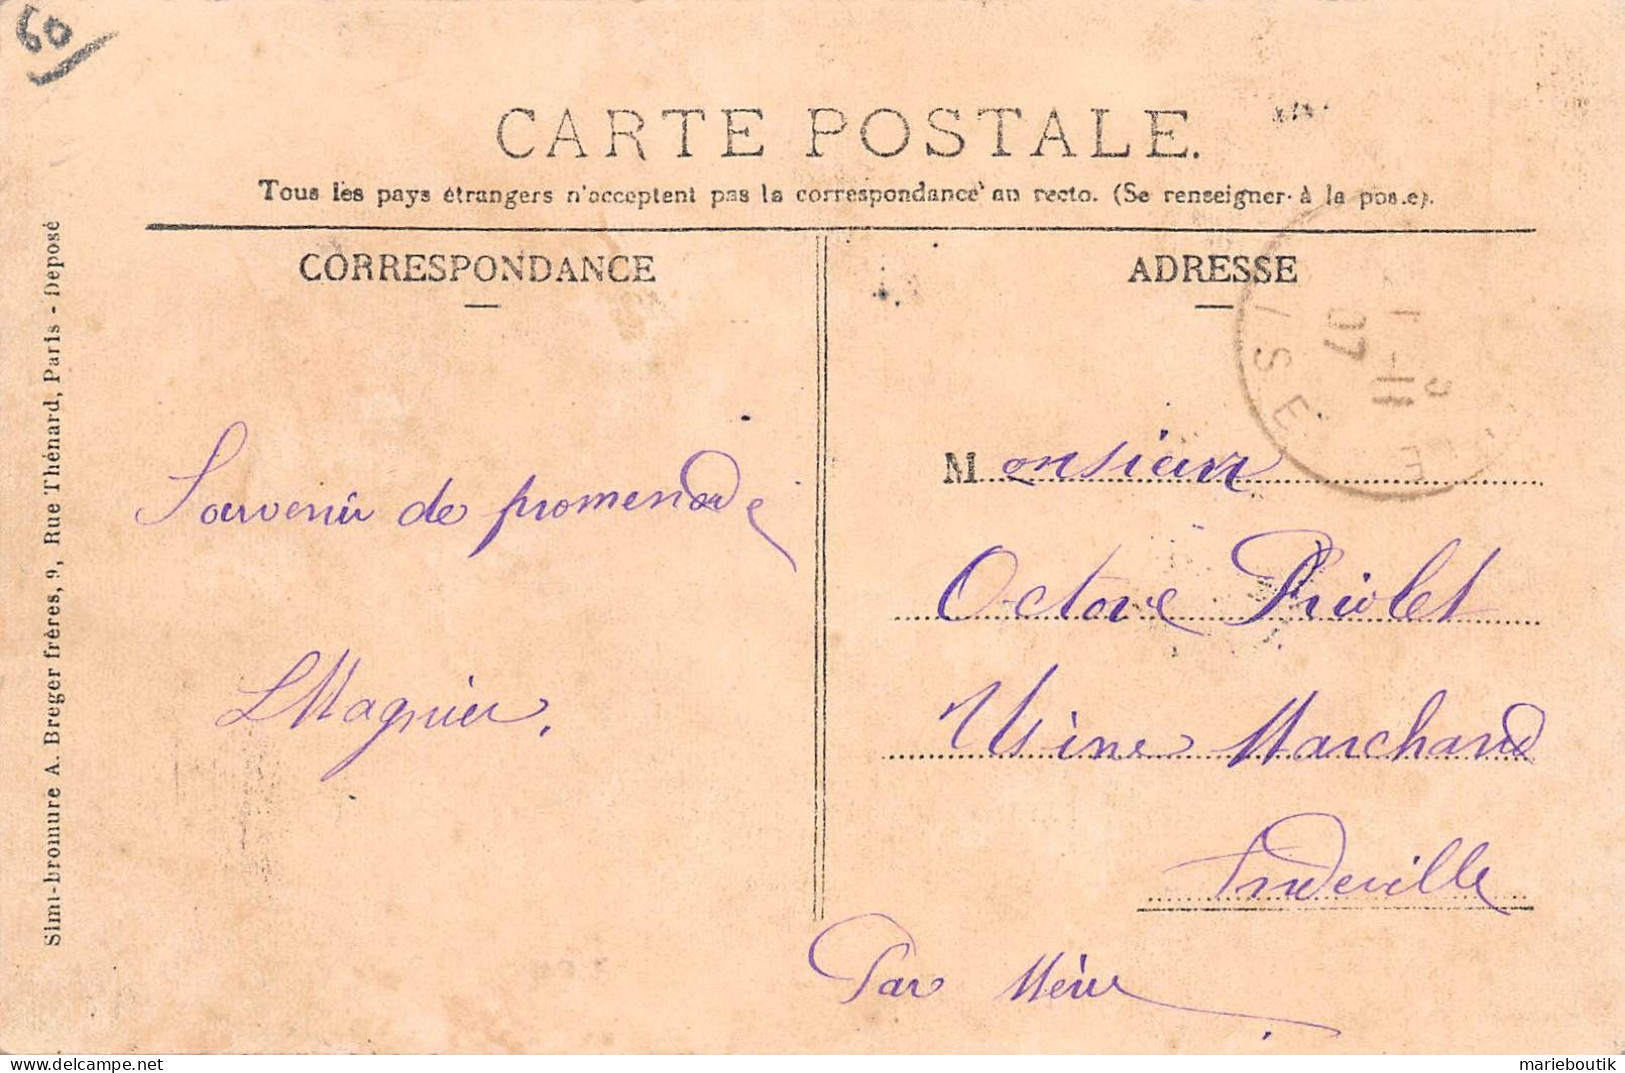 60
CARTE POSTALE.
Tous les pays étrangers n'acceptent pas la correspondance au recto. (Se renseigner à la poste).
CORRESPONDANCE
ADRESSE
Souvenir de promenade
LMagnier.
Monsieur
Octave Priolet
Usine Marchand
Andeville
Par Méru
07
ISE
E
Simi-bromure A. Breger frères, 9, Rue Thénard, Paris - Déposé
marieboutik
delcampe.net